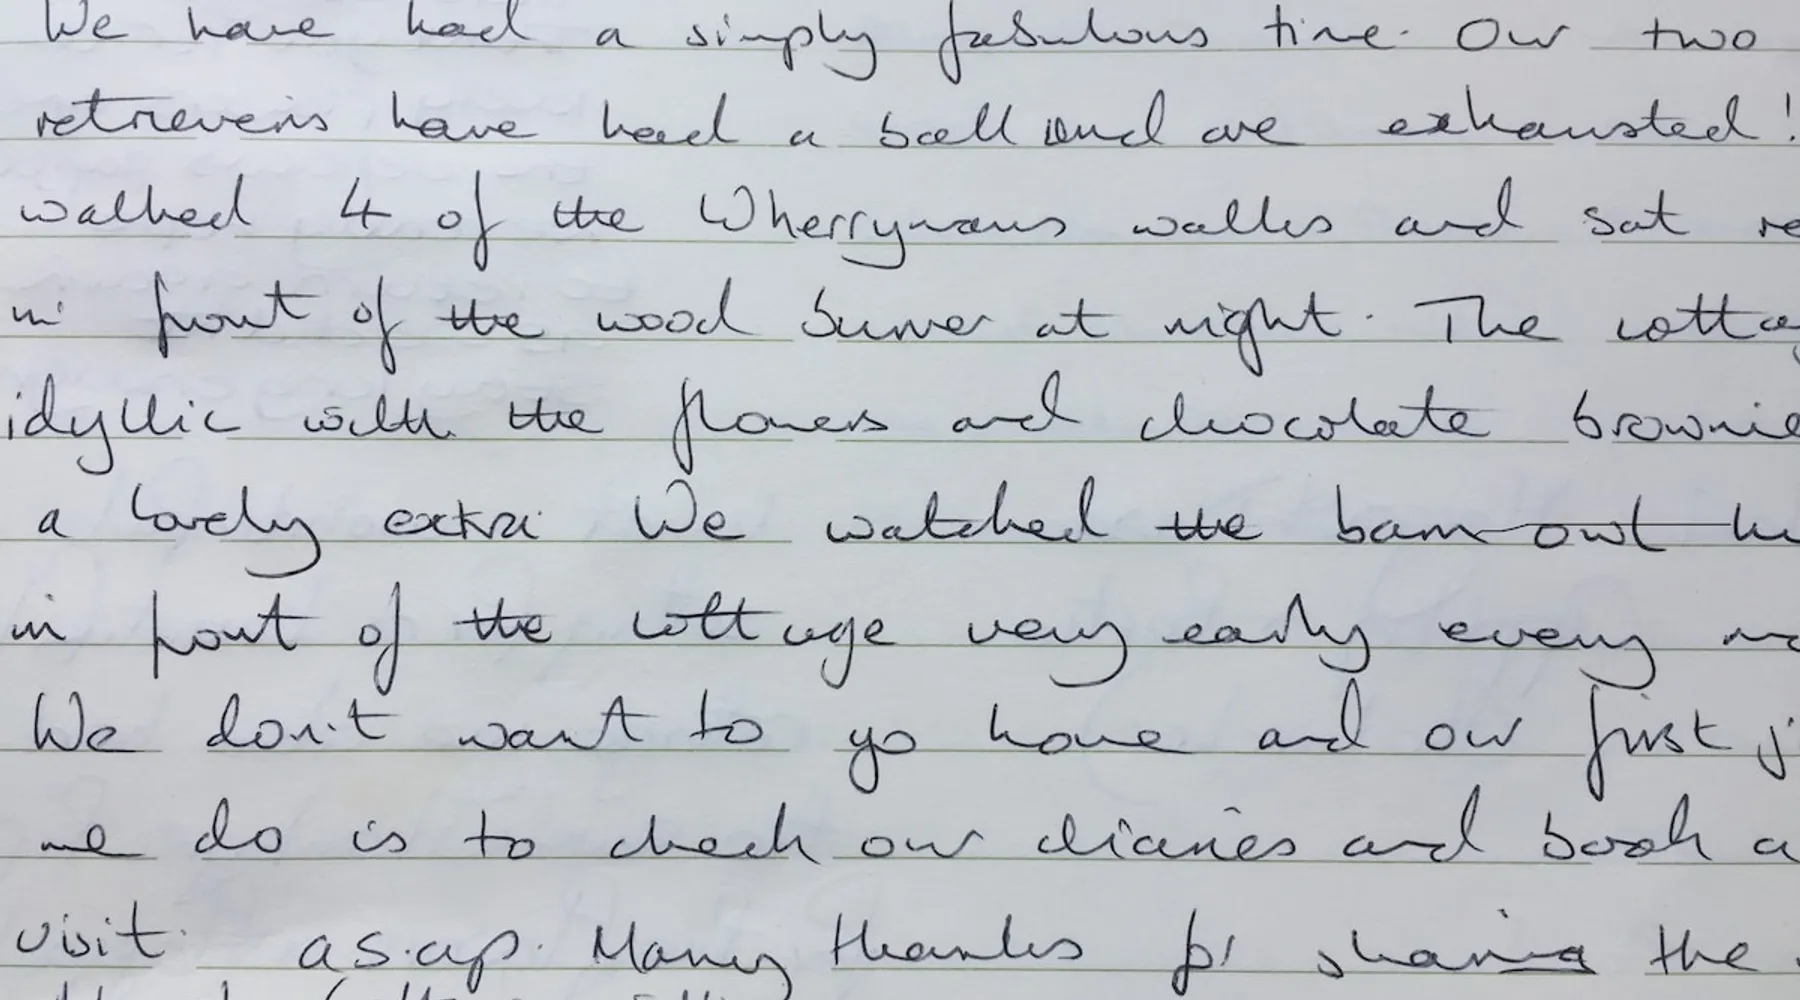 We have had a simply fabulous time. Our two
retrievers have had a ball and are exhausted!
walked 4 of the Wherrymans walks and sat
in front of the wood burner at night. The
idyllic with the flowers and chocolate
a lovely extra. We watched the barn owl
in front of the cottage very early every
We don't want to go home and our first
we do is to check our diaries and book a
visit. a.s.a.p. Many thanks for sharing the